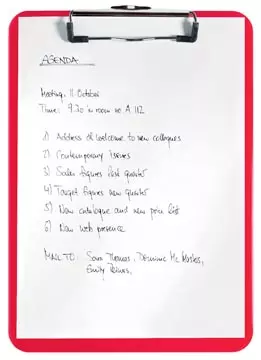 AGENDA
Meeting: 11 October
Time: 9.30 in room no A 112
1) Address of welcome to new collegues
2) Contemporary issues
3) Sales figures last quarter
4) Target figures new quarter
5) New catalogue and new price list
6) New web presence
MAIL TO: Sara Thomas, Dominic Mc
Emily